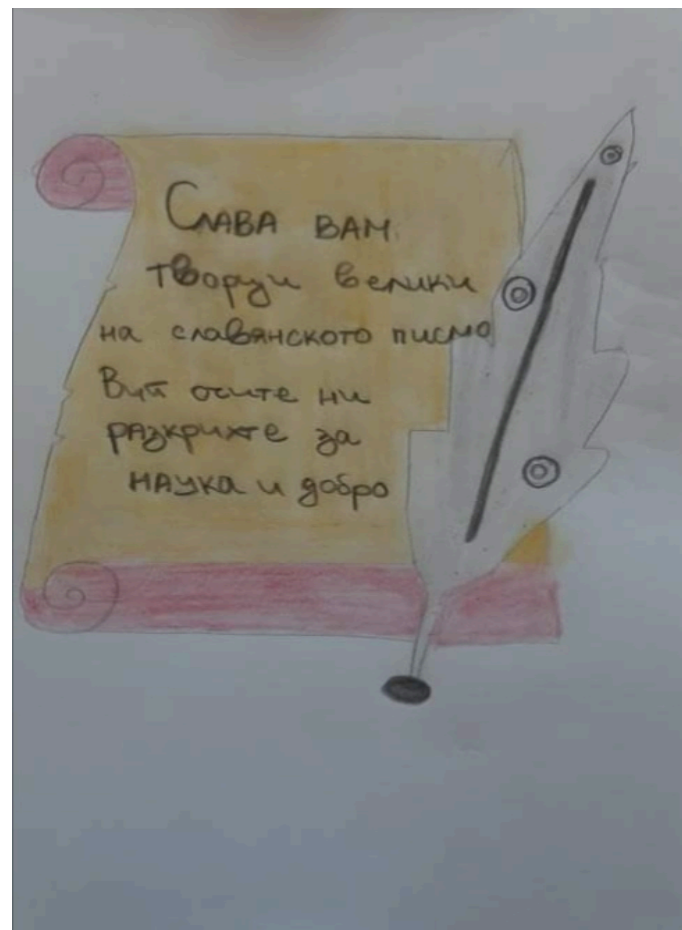 Слава вам
творци велики
на славянското писмо
Вий очите ни
разкрихте за
наука и добро